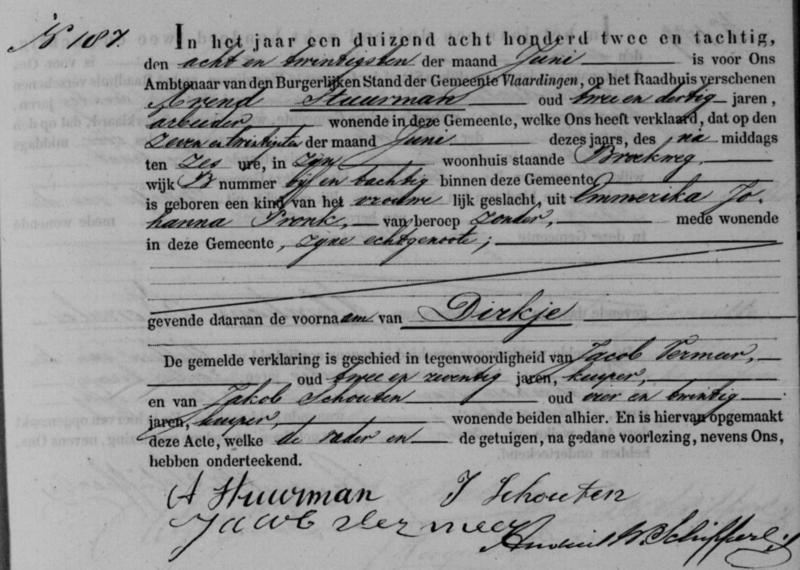 N° 187.
In het jaar een duizend acht honderd twee en tachtig,
den acht en twintigsten der maand Juni is voor Ons
Ambtenaar van den Burgerlijken Stand der Gemeente Vlaardingen, op het Raadhuis verschenen
Arend Stuurman oud twee en dertig jaren,
arbeider wonende in deze Gemeente, welke Ons heeft verklaard, dat op den
zeven en twintigsten der maand Juni dezes jaars, des na middags
ten zes ure, in zijn woonhuis staande Broekweg
wijk B nummer bij en tachtig binnen deze Gemeente
is geboren een kind van het vrouwe lijk geslacht, uit Emmerika Jo-
hanna Pronk, van beroep zonder, mede wonende
in deze Gemeente, zijne echtgenoote;
gevende daaraan de voornaam van Dirkje
De gemelde verklaring is geschied in tegenwoordigheid van Jacob Vermeer,
oud twee en zeventig jaren, kuiper,
en van Jakob Schouten oud vier en twintig
jaren, kuiper, wonende beiden alhier. En is hiervan opgemaakt
deze Acte, welke de vader en de getuigen, na gedane voorlezing, nevens Ons,
hebben onderteekend.
A Stuurman J Schouten
Jacob Vermeer